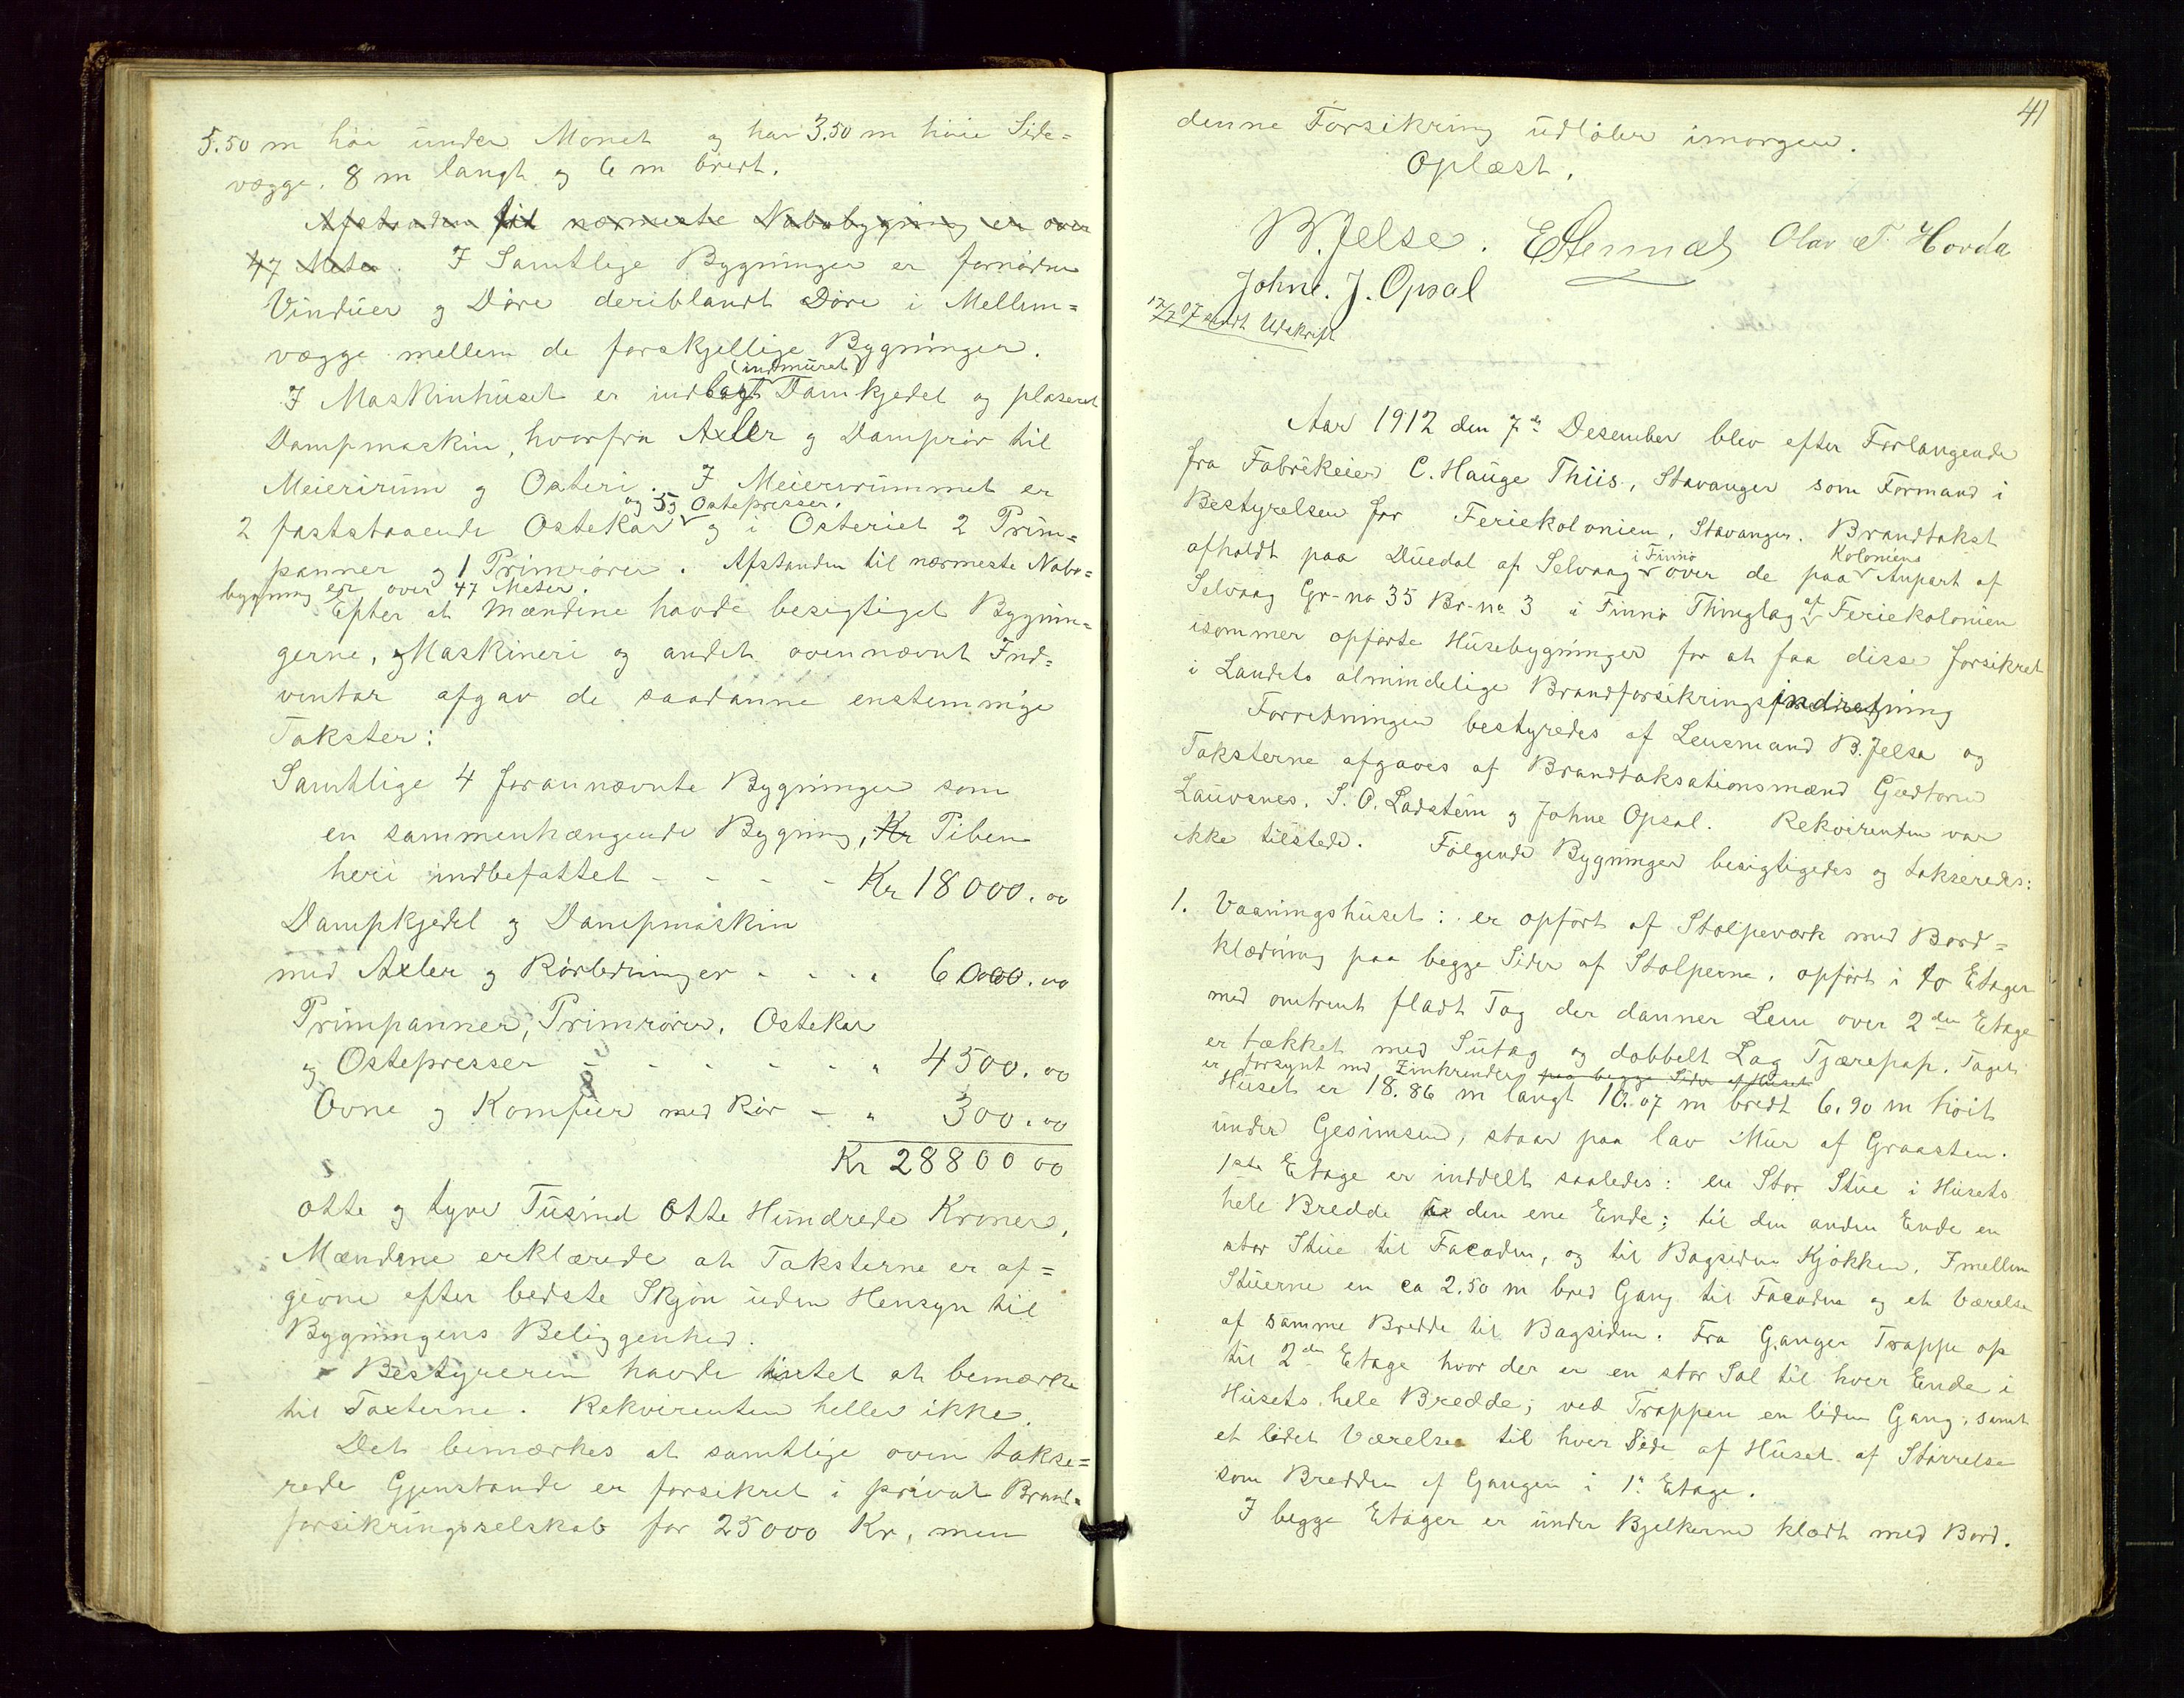 5.50 m höi under Mønet og har 3.50 m høie Side=
vægge. 8 m langt og 6 m bredt.
Afstanden til nærmeste Nabobygning er over
47 Meter. I Samtlige Bygninger er fornødne
Vinduer og Døre deriblandt Døre i Mellem=
vægge mellem de forskjellige Bygninger.
(indmuret)
I Maskinhuset er indlagt Damkjedel og plaseret
Dampmaskin, hvorfra Axler og Damprør til
Meierirum og Osteri. I Meierirummet er
og 53 Ostepresser,
2 faststaaende Ostekar og i Osteriet 2 Prim=
panner og 1 Primrører. Afstanden til nærmeste Nabo=
bygning er over 47 Meter.
Efter at Mændene havde besigtiget Bygnin=
gerne, og Maskineri og andet ovennævnt Ind=
ventar afgav de saadanne enstemmige
Takster:
Samtlige 4 forannævnte Bygninger som
en sammenhængende Bygning, Kr Piben
heri indbefattet - - - - Kr 18000.00
Dampkjedel og Dampmaskin
med Axler og Rørledninger - - - " 6000.00
Primpanner, Primrører, Ostekar
og Ostepresser - - - - - " 4500.00
Ovne og Komfur med Rør - " 300.00
Kr 28800 00
otte og tyve Tusind Otte Hundrede Kroner,
Mændene erklærede at Taksterne er af=
givne efter bedste Skjøn uden Hensyn til
Bygningens Beliggenhed.
Bestyreren havde intet at bemærke
til Taxterne. Rekvirenten heller ikke.
Det bemærkes at samtlige oven takse=
rede Gjenstande er forsikret i privat Brand=
forsikringsselskab for 25000 Kr, men
41
denne Forsikring udløber imorgen.
Oplæst.
B. Jelse. Olav T. Hovda
Johne. J. Opsal
sendt Udskrift
Aar 1912 den 7de Desember blev efter Forlangende
fra Fabrikeier C. Hauge Thiis, Stavanger som Formand i
Bestyrelsen for Feriekolonien, Stavanger. Brandtakst
i Finnø Koloniens
afholdt paa Duedal af Selvaag over de paa Anpart af
Selvaag Gr-no 35 Br-no 3 i Finnø Thinglag af Feriekolonien
isommer opførte Husebygninger for at faa disse forsikret
i Landets almindelige Brandforsikringsindretning
Forretningen bestyredes af Lensmand B. Jelsa og
Taksterne afgaves af Brandtaksationsmænd Gudtorm
Lauvsnes, S. O. Ladstein og Johne Opsal. Rekvirenten var
ikke tilstede. Følgende Bygninger besigtigedes og takseredes:
1. Vaaningshuset: er opført af Stolpeværk med Bord=
klædning paa begge Sider af Stolperne, opført i to Etager
med omtrent fladt Tag der danner Lem over 2den Etage
er tækket med Sutag og dobbelt Lag Tjærepap. Taget
er forsynt med Zinkrender paa begge Sider af Huset
Huset er 18.86 m langt 10.07 m bredt 6.90 m høit
under Gesimsen, staar paa lav Mur af Graasten.
1ste Etage er inddelt saaledes: en Stor Stue i Husets
hele Bredde i den ene Ende; til den anden Ende en
stor Stue til Facaden, og til Bagsiden Kjøkken. Imellem
Stuerne en ca 2.50 m bred Gang til Facaden og et Værelse
af samme Bredde til Bagsiden. Fra Gangen Trappe op
til 2den Etage hvor der er en stor Sal til hver Ende i
Husets hele Bredde; ved Trappen en liden Gang, samt
et lidet Værelse til hver Side af Huset af Størrelse
som Bredden af Gangen i 1ste Etage.
I begge Etager er under Bjelkerne klædt med Bord.